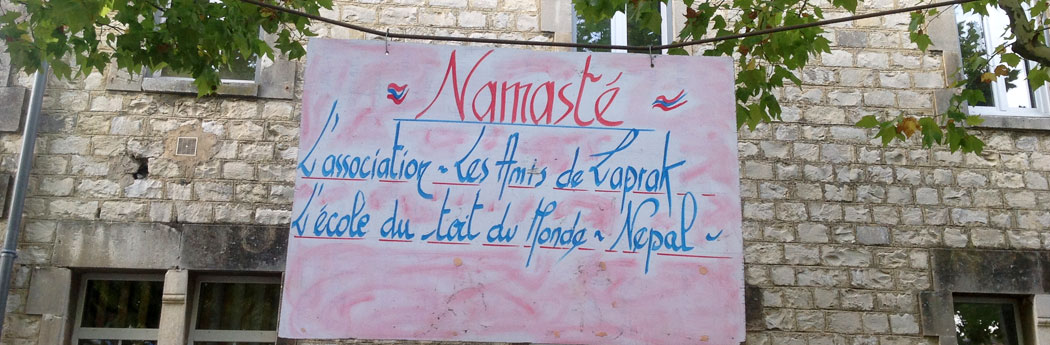 Namasté
L'association - Les Amis de Laprak
L'école du toit du Monde - Népal -